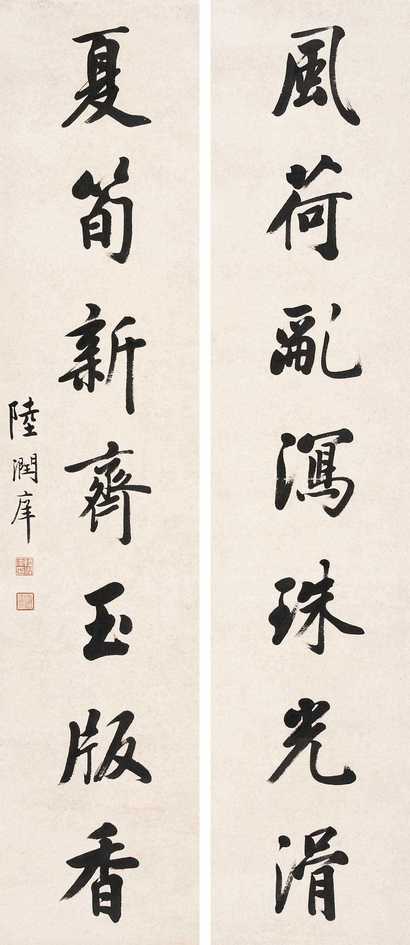 風荷亂瀉珠光滑
夏筍新齊玉版香
陸潤庠